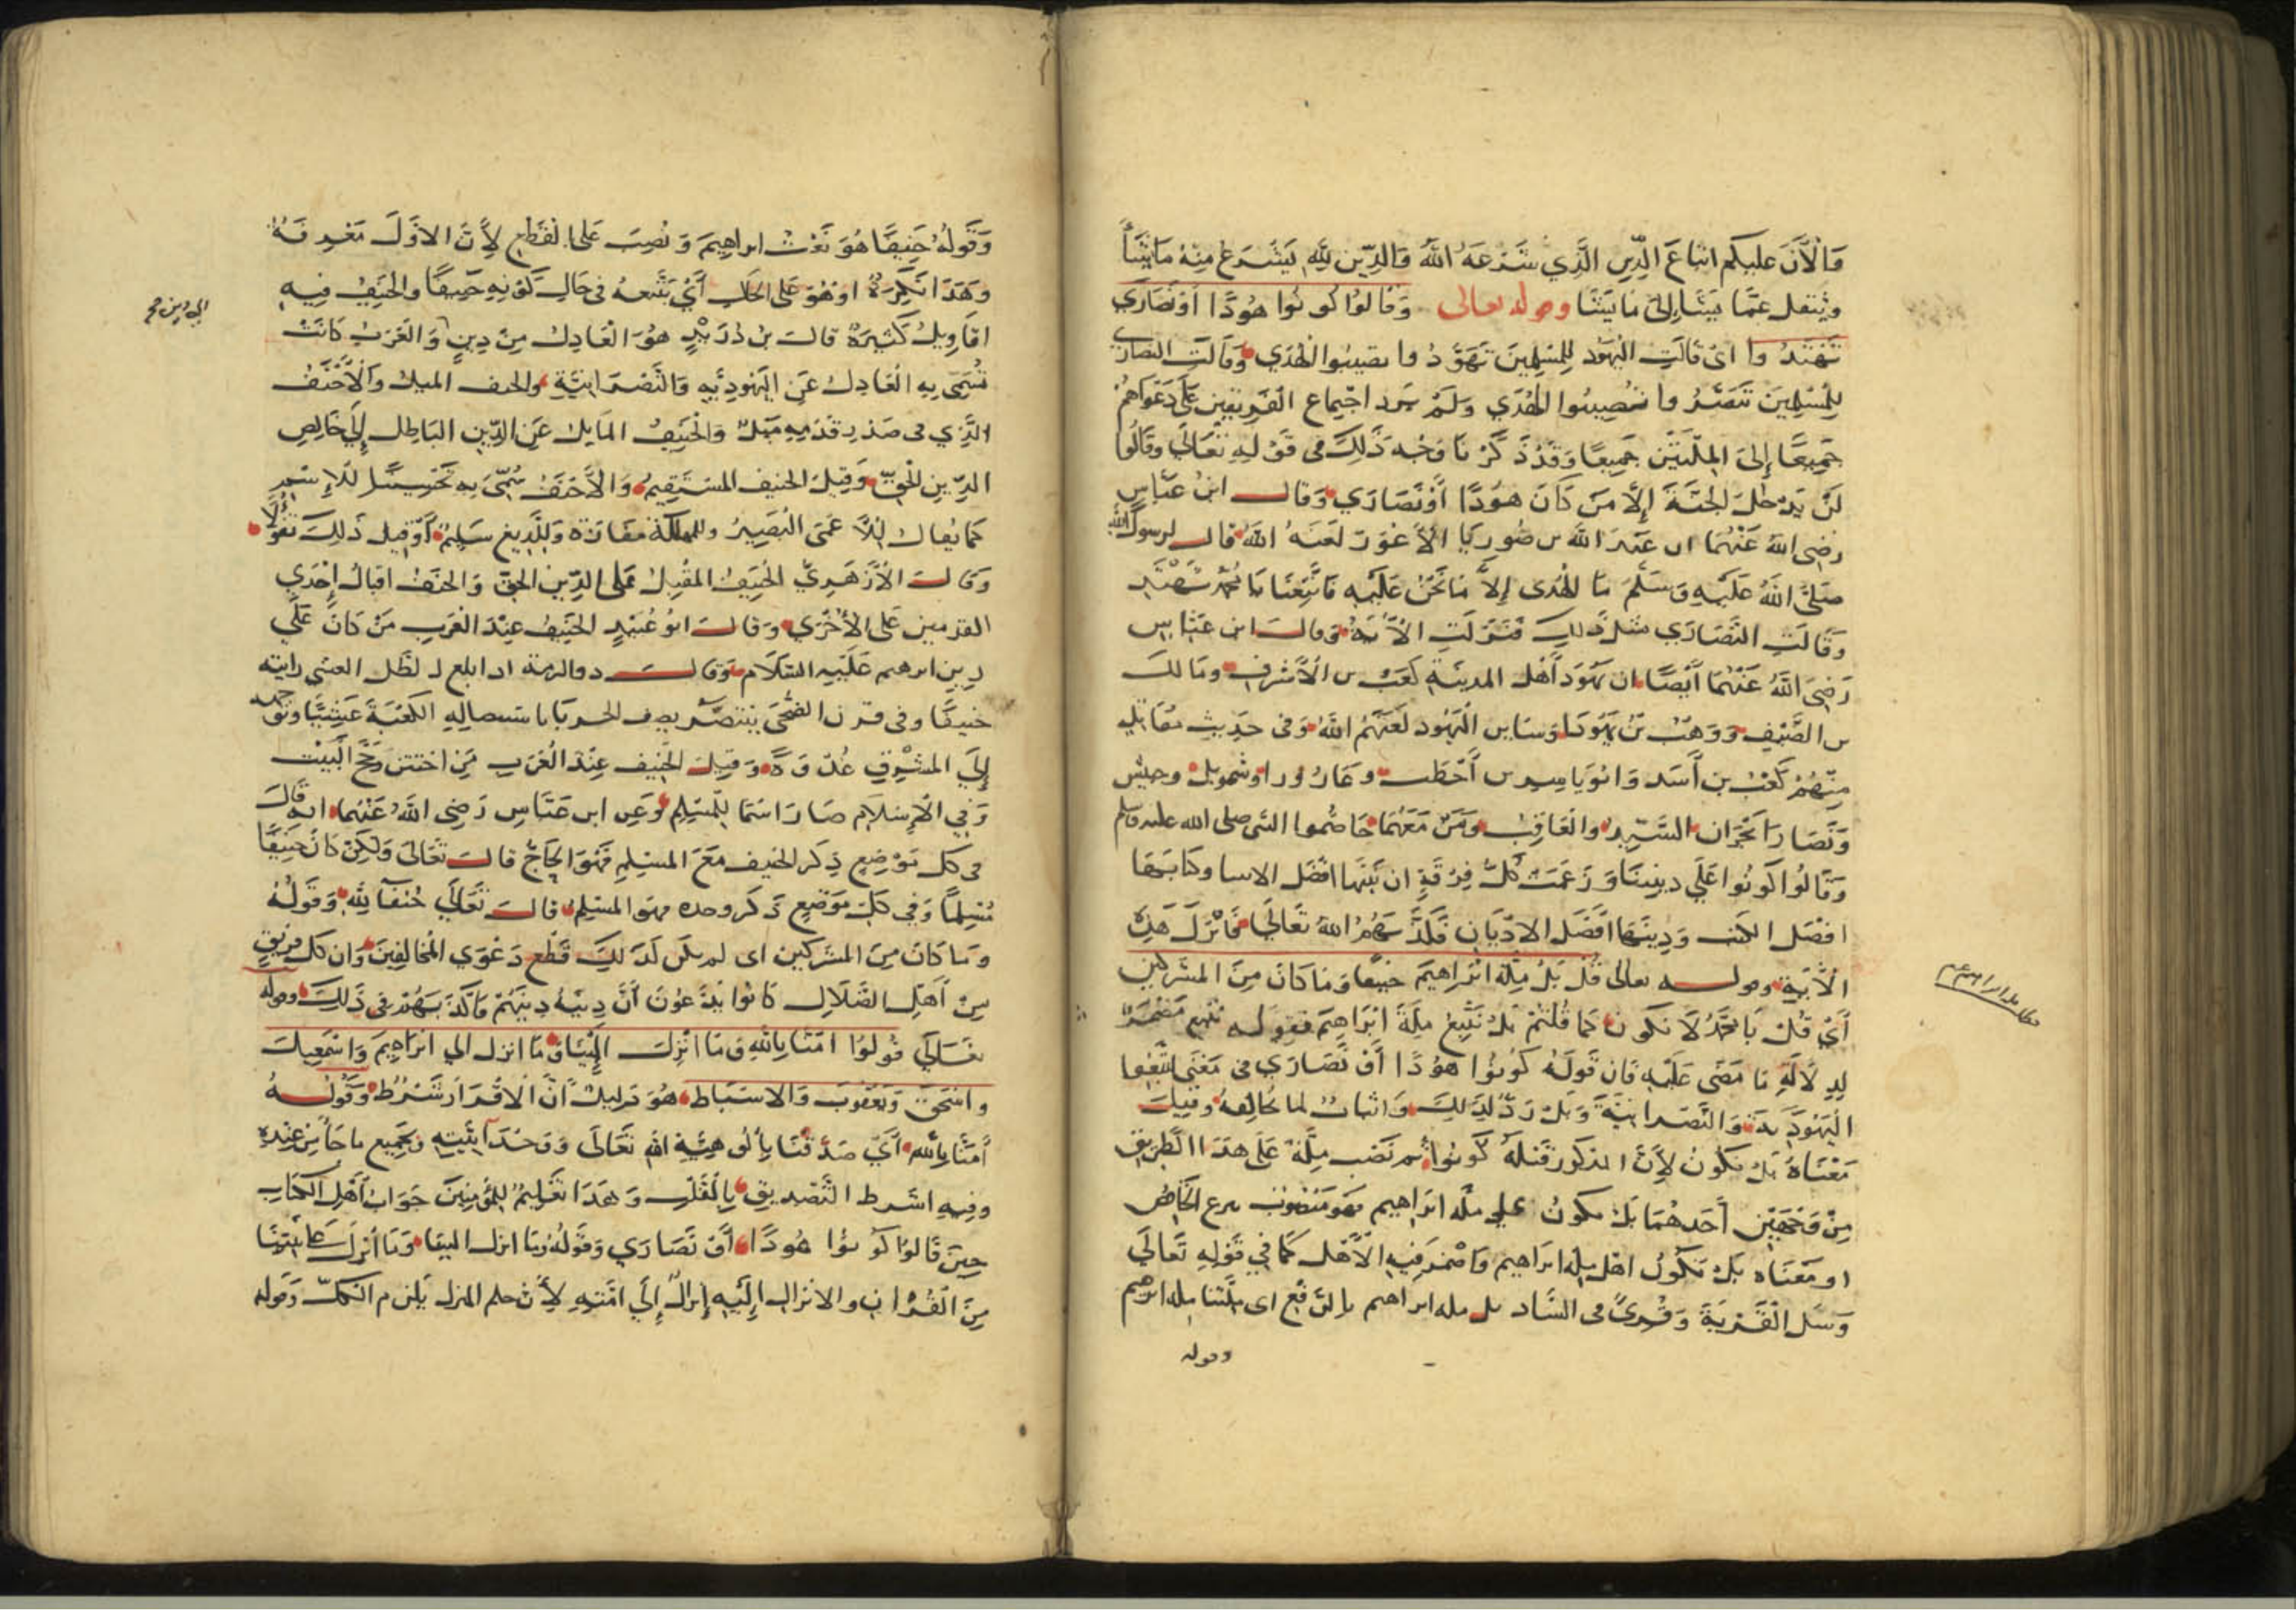 وَالْآنَ عليكم اتباعَ الدِّينِ الَّذِي شَرَعَهُ اللهُ وَالدِّين لِلَّهِ يَشْرَعُ مِنْهُ مَا يَشَآءُ
وَيَنقل عمَّا يَشَآ إلى مَا يَشَآ وقوله تعالى وَقَالُوا كُونُوا هُودًا أَوْ نَصَارَي
تَهْتَدُوا اي قَالَتِ اليَهُود لِلمُسْلِمِينَ تَهَوَّدُوا تصيبُوا الهُدَي وَقَالَتِ النصَارَي
لِلمُسْلِمِينَ تَنَصَّرُوا تُصِيبُوا الهُدَي وَلَمْ يَرِد اجْتِماع الْفَرِيقَينِ عَلَى دَعْوَاهُمْ
جَمِيعًا إِلَى المِلَّتَيْنِ جَمِيعًا وَقَدْ ذَكَرْنَا وَجْهَ ذَلِكَ في قَوْلِهِ تَعَالَي وَقَالُوا
لَنْ يَدْخُلَ الجَنَّةَ إِلَّا مَن كَانَ هُودًا أَوْ نَصَارَي وَقال ابنُ عَبَّاسٍ
رَضِيَ اللهُ عَنْهُمَا ان عَبْدَ الله بن صُورِيَا الأَعْوَر لَعَنَهُ اللهُ قال لرسول الله
صَلَّى اللهُ عَلَيْهِ وَسَلَّمَ مَا الهُدى إِلَّا مَا نَحْنُ عَلَيْهِ فَاتَّبِعْنَا يَا مُحَمَّد تَهْتَدِ
وَقَالَتِ النَّصَارَي مثل ذلك فَنَزَلَتِ الآيَةُ وقالَ ابن عَبَّاسٍ
رَضِيَ اللهُ عَنْهُمَا أَيْضًا ان يَهُودَ أَهْل المدينَةِ كَعْبُ بن الأَشْرَفِ وَمَالك
بن الصَّيْفِ وَوَهْبُ بنُ يَهُودَا وَسَايِر اليَهُود لَعَنَهُمُ اللهُ وَفي حَدِيثِ مُقَاتِلٍ
مِنْهُمْ كَعْبُ بن أَسَد وَابُو يَاسِر بن أَخْطَب وعَازورا وشمويل وحيش
وَنَصَارَا نَجْرَان السَّيِّدُ والْعَاقِبُ وَمَنْ مَعَهُمَا خَاصَمُوا النبي صلى الله عليه وسلم
وَقَالُوا كُونُوا عَلَي دِينِنَا وَزَعَمَتْ كُلُّ فِرْقَةٍ ان نَبِيَّهَا افْضَل الانبيا وكتابَهَا
افْضَل الكتب وَدِينَهَا افْضَل الادْيَان فَكَذَّبَهُمُ اللهُ تَعَالَى فَأَنْزَلَ هَذِهِ
الآيَة وقوله تعالى قُلْ بَلْ مِلَّةَ ابْرَاهِيمَ حَنِيفًا وَمَا كَانَ مِنَ المشركين
أَيْ قُلْ يَا مُحَمَّدُ لَا نكون كَمَا قُلْتُمْ بَلْ نَتَّبِعُ مِلَّةَ ابْرَاهِيمَ فقوله نتبع مُضْمَرٌ
لِدِلَالَةِ مَا مَضَى عَلَيْهِ فَان قَوْلَهُ كُونُوا هُودًا أَوْ نَصَارَي في مَعْنَى اتَّبِعُوا
الْيَهُودِيَّةَ وَالنَّصْرَانِيَّةَ وَبَلْ رَدٌّ لِذلِكَ وَاثباتٌ لما يُخَالِفهُ وَقِيلَ
مَعْنَاهُ بَلْ نَكُونُ لِأَنَّ المذكور قَبْلَهُ كُونُوا ثم نَصْب مِلَّةَ عَلَى هَذَا الطَّرِيقِ
مِنْ وَجْهَيْنِ أَحَدهُمَا بَلْ نكونُ على ملة ابْرَاهِيم فَهُوَ مَنْصُوب بنزع الخَافِضِ
او مَعْنَاه بَلْ نَكُونُ اهْل مِلَّة ابْرَاهِيم وَاضْمَرَ فِيهِ الأَهْل كَمَا فِي قَوْلِهِ تَعَالَي
وَسَلِ الْقَرْيَةَ وَقُرِئَ في الشَّاذ بل ملة ابراهيم بالرَّفْعِ اي مِلَّتُنا مِلة ابرهيم
وقوله
وَقَوْلُهُ حَنِيفًا هُوَ نَعْتُ ابراهِيمَ وَنُصِبَ عَلَى الْقَطْعِ لِأَنَّ الاوَّلَ مَعْرِفَةٌ
وَهَذَا نَكِرَةٌ اوْ هُوَ عَلَى الحَال أَيْ نَتَّبِعهُ في حَالِ كَوْنِهِ حَنِيفًا والْحَنِيفُ فِيهِ
اقَاوِيلُ كَثِيرَةٌ قالَ بنُ دُرَيْدٍ هُوَ الْعَادِلُ مِنْ دِينٍ وَالْعَرَبُ كَانَتْ
تُسَمِّى بِهِ الْعَادِلَ عَنِ اليَهُودِيَّةِ وَالنَّصْرَانِيَّةِ والحنف الميل وَالْأَحْنَفُ
الَّذِي في صَدْرِ قَدَمِهِ مَيْلٌ وَالْحَنِيفُ المَايِل عَنِ الدِّينِ البَاطِل إِلَى خَالِصِ
الدِّينِ الْحَقِّ وَقِيلَ الحنيف المسْتَقِيمُ وَالأَحْنَفُ سُمِّيَ بِهِ تَحْسِينًا لِلاسْمِ
كَمَا يُقَال لِلْأَعْمَى الْبَصِيرُ وللمهلكة مَفَازَة وَلِلَّدِيغِ سَلِيمٌ أَوْ قيل ذَلِكَ تَفَؤُّلًا
وَقَالَ الْأَزْهَرِيُّ الْحَنِيفُ المُقْبِل عَلَى الدِّين الحق وَالحنَفُ اقبالُ إِحْدَي
القدمين عَلَى الأُخْرَي وَقَالَ ابُو عُبَيْدٍ الحَنِيفُ عِنْدَ الْعَرَبِ مَنْ كَانَ عَلَي
دِين ابرهيم عَلَيْهِ السَّلَام وَقالَ ذوالرمة اذا الظل العشي رايته
حَنِيفًا وفي قرن الضُّحَى يَتَنَصَّرُ يصف الحربَا باستقباله الكَعْبَةَ عَشِيًّا وتوجهه
إِلَى المشْرِقِ غُدْوَةً وَقِيلَ الْحَنِيف عِنْدَ الْعَرَبِ مَنِ اخْتَتَنَ وَحَجَّ الْبَيْت
وَفِي الْإِسْلَام صَارَ اسْمًا لِلْمُسْلِمِ وَعَنِ ابن عَبَّاسٍ رَضِيَ اللهُ عَنْهُمَا انه قَالَ
في كل مَوْضِعٍ ذِكر الحنيف مَعَ المسْلِمِ فَهُوَ الحَاجُّ قالَ تَعَالَى وَلَكِنْ كَانَ حَنِيفًا
مُسْلِمًا وَفِي كُلِّ مَوْضِعٍ ذُكر وحده فهو المسْلِمُ قالَ تَعَالَي حُنَفَآ لِلَّهِ وَقَوْلُهُ
وَمَا كَانَ مِنَ المشركينَ اي لم يكن كَذَلِكَ قَطْعُ دَعْوَي الْمُخَالِفِينَ وَان كل فَرِيقٍ
مِنْ أَهْلِ الضَّلَالِ كَانُوا يَدَّعُونَ أَنَّ دِينَهُ دِينُهُمْ فَاكْذَبَهُمْ في ذَلِكَ وقوله
تَعَالَي قُولُوا امَنَّا بِاللهِ وَمَا انْزِلَ إِلَيْنَا وَمَا انزل الي ابْرَاهِيمَ وَاسْمَعِيلَ
وَاسْحَقَ وَيَعْقُوبَ وَالاسْبَاطِ هُوَ دَلِيلٌ أَنَّ الْاقْرَارَ شَرْطٌ وَقَوْلُهُ
أَمَنَّا بِاللهِ أَيْ صَدَّقْنَا بِأُلُوهِيَّةِ اللهِ تَعَالَى وَوَحْدَانِيَّتِهِ وَبِجَمِيعِ مَا جَآ مِنْ عِنْدِهِ
وَفِيهِ اشْرط التَّصْدِيقِ بِالْقَلْبِ وَهَذَا تَعْلِيمٌ لِلْمُؤْمِنِينَ جَوَابُ أَهْلِ الكتابِ
حِينَ قَالُوا كُونُوا هُودًا أَوْ نَصَارَي وَقَوْلُهُ وَمَا انزل الينا وَمَا أُنْزِلَ عَلَى نَبِيِّنَا
مِنَ الْقُرْآنِ والانزال إِلَيْهِ إِنْزَالٌ إِلَى امَّتِهِ لِأَنَّ حكم المنزل يَلْزَم الْكلَّ وَقَوله